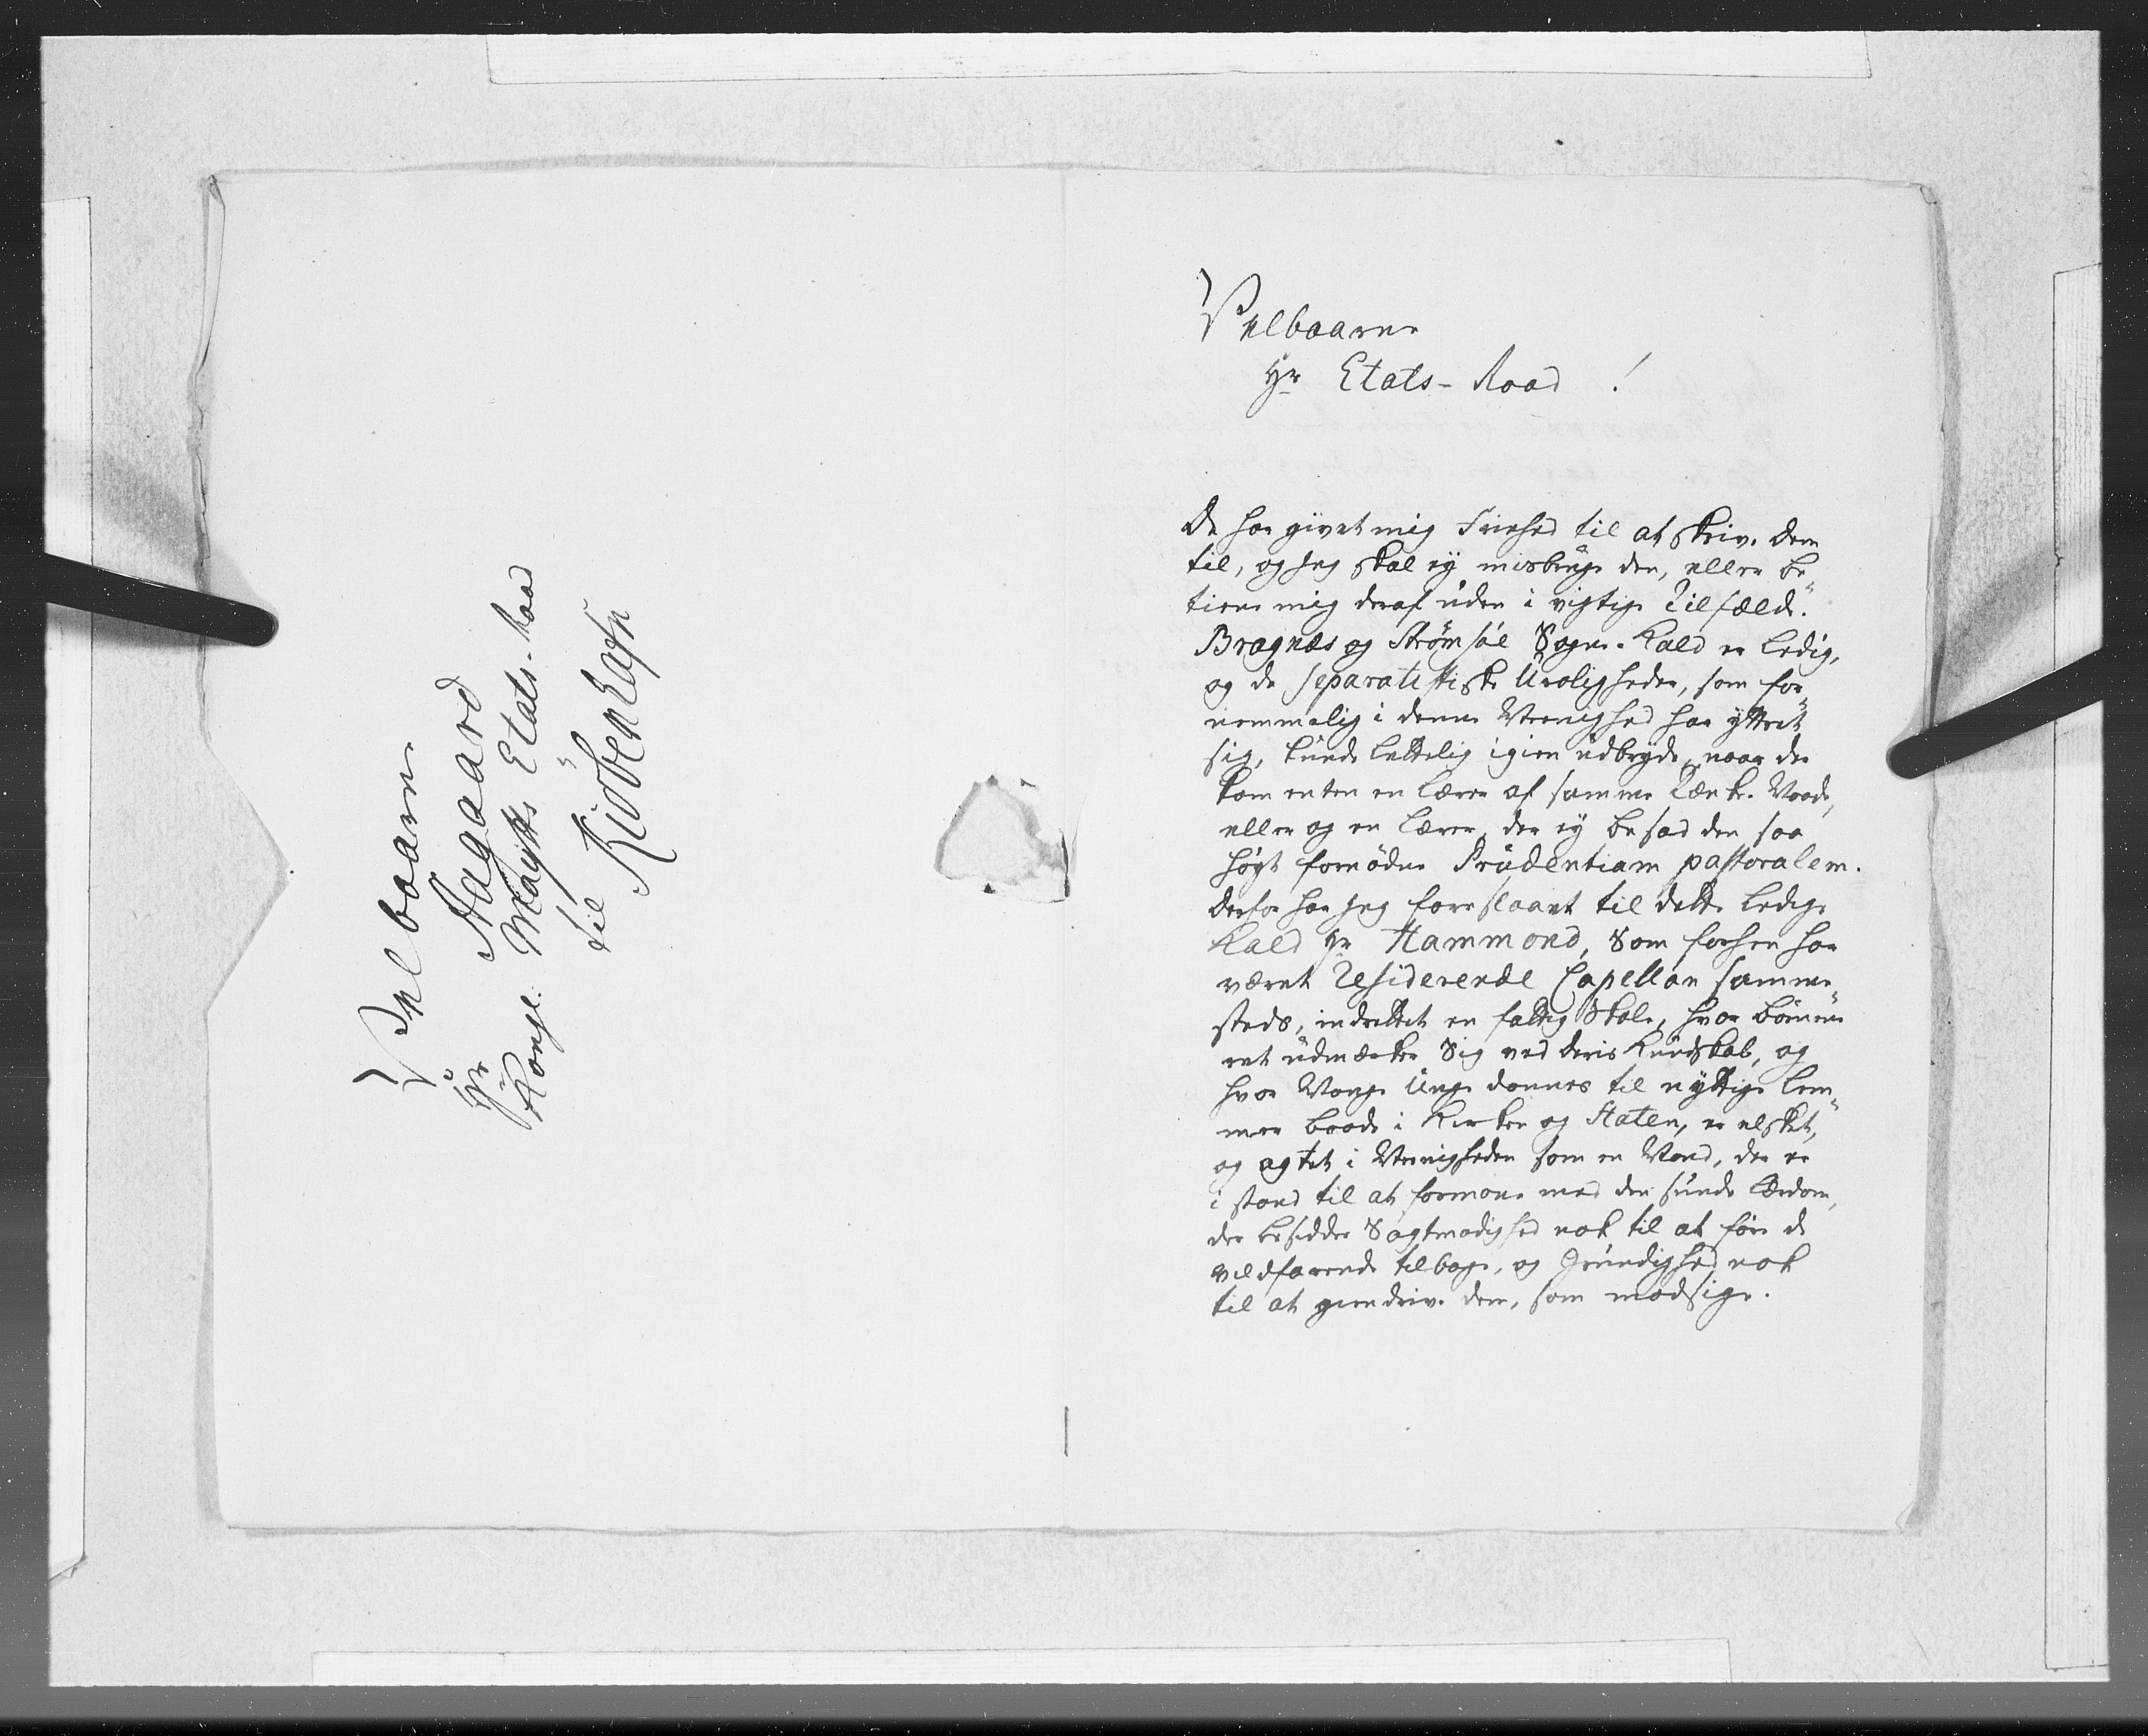 Velbaarne
Hr Aagaard
Kongl. Maytts Etats-Raad
til Kiöbenhafn
Velbaarne
Hr Etats-Raad!
De har givet mig Friehed til at skrive Dem
til, og jeg skal ej misbruge den, eller be„
tiene mig deraf uden i vigtige Tilfælde.
Bragnæs og Strømsøe Sogne-Kald er ledig,
og de separatistiske Uroligheder, som for„
nemmelig i denne Meenighed har yttret
sig, kunde lettelig igien udbryde, naar der
kom enten en Lærer af samme Tænke-Maade,
eller og en Lærer, der ej besad den saa
høyt fornødne Prudentiam pastoralem.
Derfor har jeg foreslaaet til dette ledige
Kald Hr Hammond, som forhen har
været Residerende Capellan samme„
steds, indrettet en fattig Skole, hvor Börne„
net udmærker Sig ved deris Kundskab, og
hvor Mange Unge dannes til nyttige Lem„
mer baade i Kirken og Staten, er elsket,
og agtet i Meenigheden som en Mand, der er
i stand til at formane med den sunde Lærdom,
der besidder Sagtmodighed nok til at føre de
vildfarende tilbage, og Grundighed nok
til at giendrive dem, som modsige.